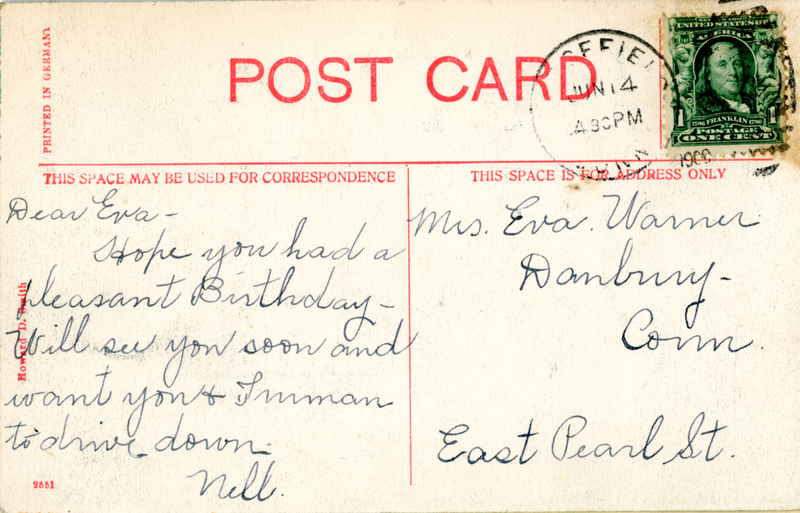 PRINTED IN GERMANY
POST CARD
JUN 14
4 30 PM
1908
UNITED STATES OF
AMERICA
1 1706 FRANKLIN 1790 1
POSTAGE
ONE CENT
THIS SPACE MAY BE USED FOR CORRESPONDENCE
THIS SPACE IS FOR ADDRESS ONLY
Dear Eva-
Hope you had a
pleasant Birthday-
Will see you soon and
want you & Inman
to drive down.
Nell.
Mrs. Eva. Warner
Danbury-
Conn.
East Pearl St.
Howard D. Smith
2551